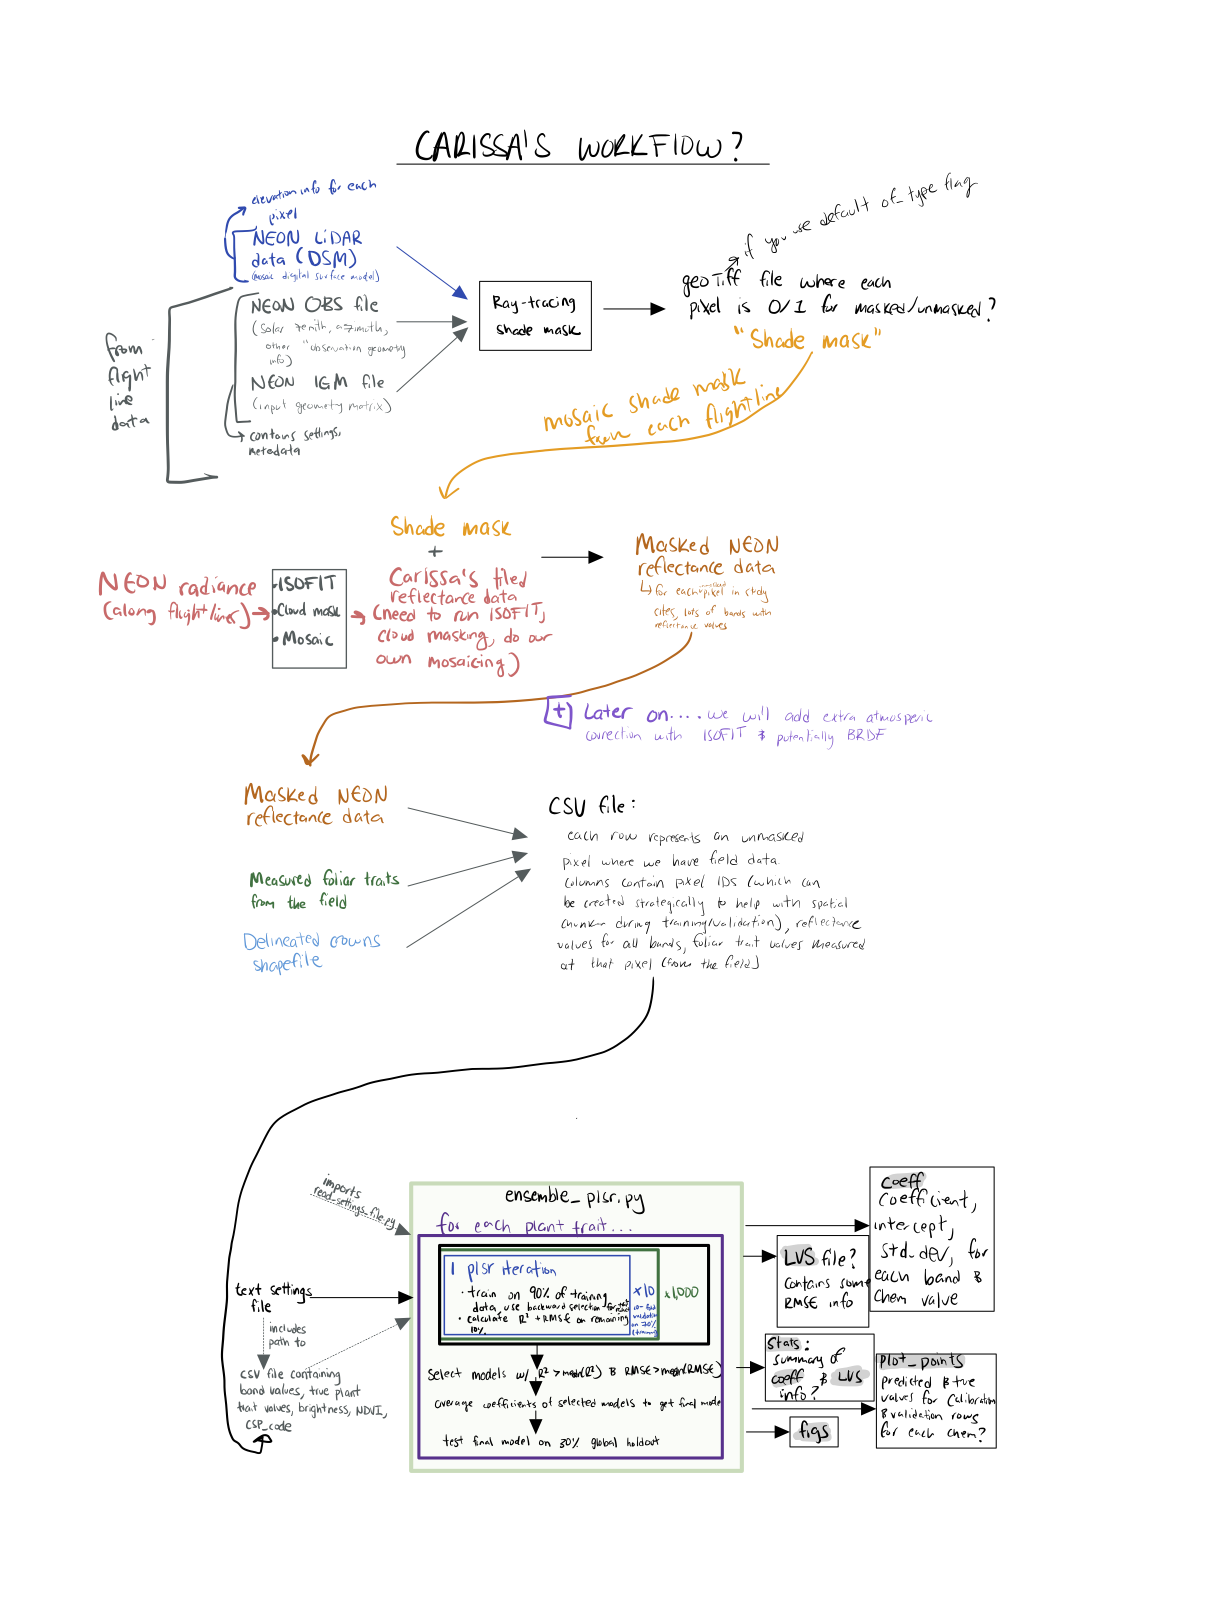 CARISSA'S WORKFLOW?
elevation info for each
pixel
NEON LiDAR
data (DSM)
(mosaic digital surface model)
NEON OBS file
(solar zenith, azimuth,
other "observation geometry
info)
NEON IGM file
(input geometry matrix)
contains settings,
metadata
from
flight
line
data
Ray-tracing
shade mask
if you use default of_type flag
geoTiff file where each
pixel is 0/1 for masked/unmasked?
"Shade mask"
mosaic shade mask
from each flightline
Shade mask
+
NEON radiance
(along flightlines)
• ISOFIT
• Cloud mask
• Mosaic
Carissa's filed
reflectance data
(need to run ISOFIT,
cloud masking, do our
own mosaicing)
Masked NEON
reflectance data
for each unmasked pixel in study
sites, lots of bands with
reflectance values
+ Later on.... we will add extra atmosperic
correction with ISOFIT & potentially BRDF
Masked NEON
reflectance data
Measured foliar traits
from the field
Delineated crowns
shapefile
CSV file:
each row represents an unmasked
pixel where we have field data.
columns contain pixel IDS (which can
be created strategically to help with spatial
during training/validation), reflectance
values for all bands, foliar trait values measured
at that pixel (from the field)
imports
read_settings_file.py
text settings
file
includes
path to
CSV file containing
band values, true plant
trait values, brightness, NDVI,
CSP_code
ensemble_plsr.py
for each plant trait...
1 plsr iteration
• train on 90% of training
data, use backward selection for
• calculate R² + RMSE on remaining
10%.
x10
10-fold
validation
on 70%
(training)
x1,000
Select models w/ R² > mean(R²) & RMSE > mean(RMSE)
average coefficients of selected models to get final model
test final model on 30% global holdout
coeff
coefficient,
intercept,
std_dev, for
each band &
chem value
LVS file?
contains some
RMSE info
Stats:
summary of
coeff & LVS
info?
plot_points
predicted & true
values for calibration
& validation rows
for each chem?
figs